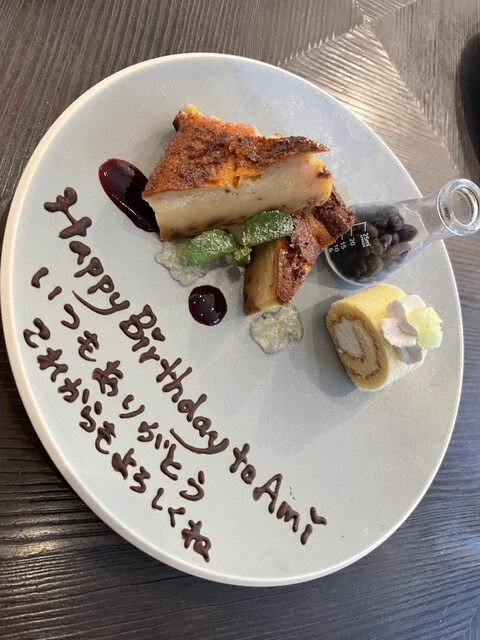 Happy Birthday to Ami
いつもありがとう
これからもよろしくね